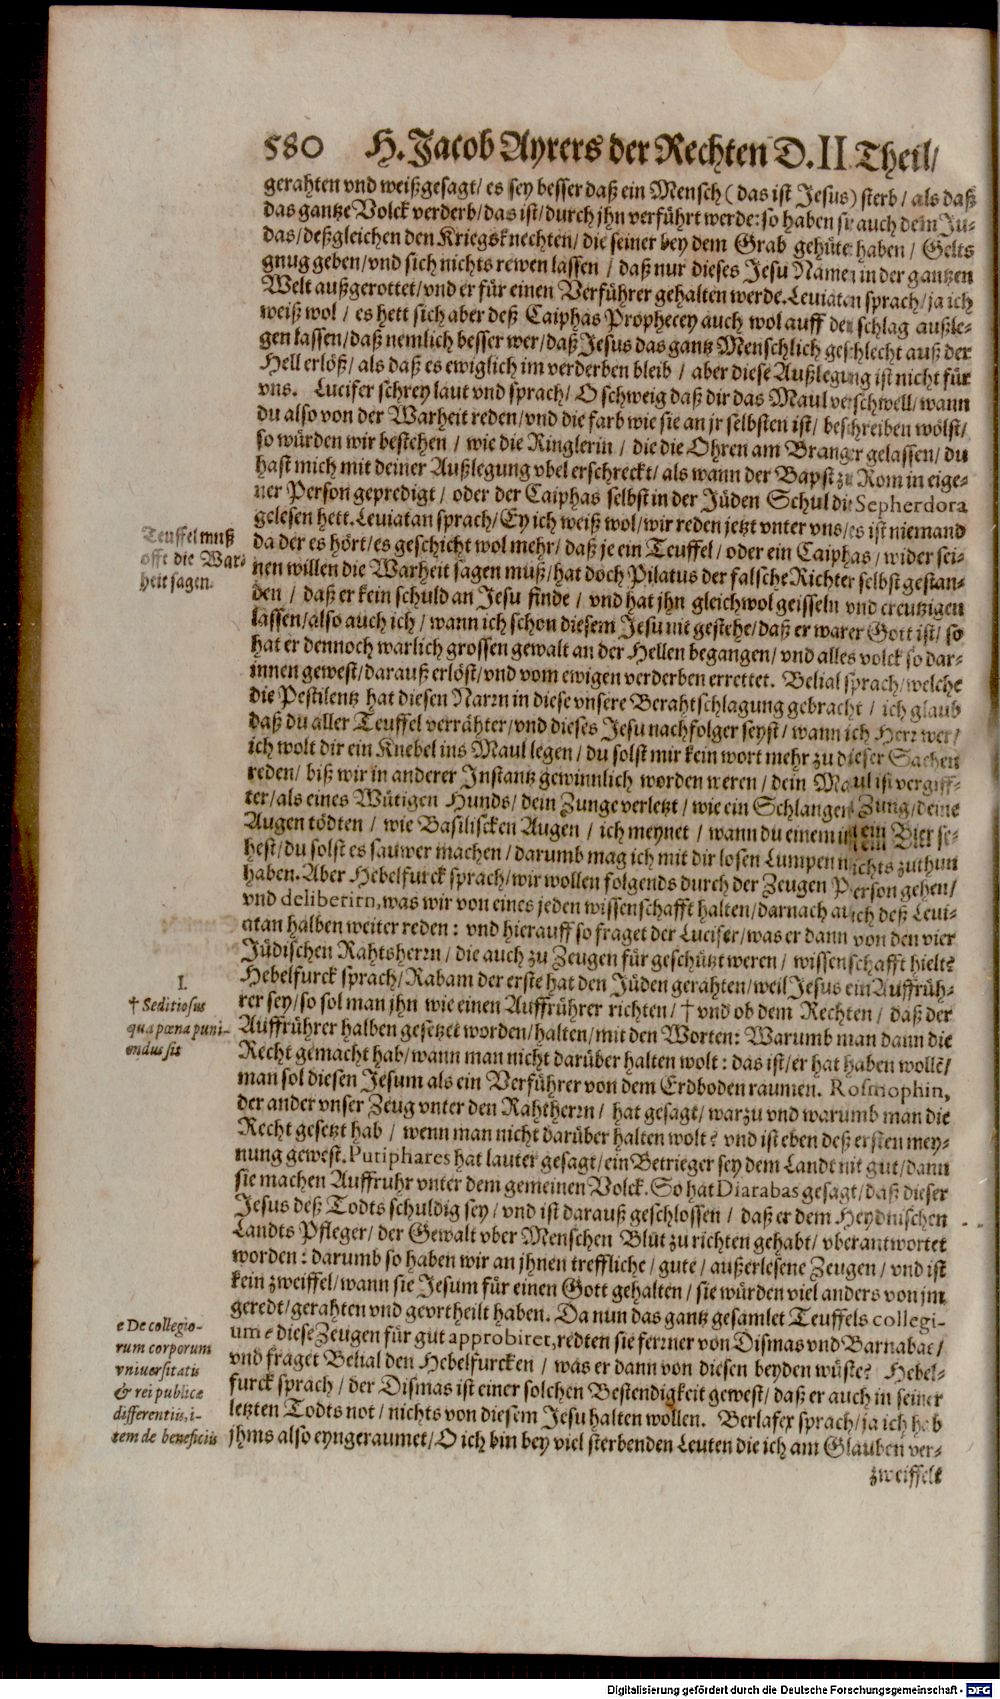 580 H. Jacob Ayrers der Rechten D. II Theil/
gerahten vnd weißgesagt/ es sey besser daß ein Mensch (das ist Jesus) sterb/ als daß
das gantze Volck verderb/das ist/durch jhn verführt werde: so haben sie auch dem Ju-
das/deßgleichen den Kriegsknechten/ die seiner bey dem Grab gehütet haben/ Gelts
gnug geben/vnd sich nichts rewen lassen / daß nur dieses Jesu Namen in der gantzen
Welt außgerottet/vnd er für einen Verführer gehalten werde. Leviatan sprach/ja ich
weiß wol / es hett sich aber deß Caiphas Prophecey auch wol auff den schlag außle-
gen lassen/daß nemlich besser wer/daß Jesus das gantz Menschlich geschlecht auß der
Hell erlöß/ als daß es ewiglich im verderben bleib / aber diese Außlegung ist nicht für
vns. Lucifer schrey laut vnd sprach/ O schweig daß dir das Maul verschwell/ wann
du also von der Warheit reden/vnd die farb wie sie an jr selbsten ist/ beschreiben wölst/
so würden wir bestehen / wie die Ringlerin / die die Ohren am Branger gelassen/ du
hast mich mit deiner Außlegung vbel erschreckt/ als wann der Bapst zu Rom in eige-
ner Person gepredigt / oder der Caiphas selbst in der Jüden Schul die Sepherdora
gelesen hett. Leviatan sprach/ Ey ich weiß wol/wir reden jetzt vnter vns/es ist niemand
Teuffel muß
offt die War-
heit sagen.
da der es hört/es geschicht wol mehr/ daß je ein Teuffel/ oder ein Caiphas/ wider sei-
nen willen die Warheit sagen muß/hat doch Pilatus der falsche Richter selbst gestan-
den / daß er kein schuld an Jesu finde / vnd hat jhn gleichwol geisseln vnd creutzigen
lassen/also auch ich / wann ich schon diesem Jesu nit gestehe/daß er warer Gott ist/ so
hat er dennoch warlich grossen gewalt an der Hellen begangen/ vnd alles volck so dar-
innen gewest/darauß erlöst/vnd vom ewigen verderben errettet. Belial sprach/welche
die Pestilentz hat diesen Narrn in diese vnsere Berahtschlagung gebracht / ich glaub
daß du aller Teuffel verrähter/vnd dieses Jesu nachfolger seyst/ wann ich Herr wer/
ich wolt dir ein Knebel ins Maul legen/ du solst mir kein wort mehr zu dieser Sachen
reden/ biß wir in anderer Instantz gewinnlich worden weren / dein Maul ist vergiff-
ter/als eines Wütigen Hunds/ dein Zunge verletzt / wie ein Schlangen Zung/ deine
Augen tödten / wie Basiliscken Augen / ich meynet / wann du einem in ein Bier se-
hest/du solst es sauwer machen / darumb mag ich mit dir losen Lumpen nichts zuthun
haben. Aber Hebelfurck sprach/wir wollen folgends durch der Zeugen Person gehen/
vnd deliberirn, was wir von eines jeden wissenschafft halten/darnach auch deß Levi-
atan halben weiter reden: vnd hierauff so fraget der Lucifer/was er dann von den vier
Jüdischen Rahtsherrn / die auch zu Zeugen für geschützt weren / wissenschafft hielt?
I.
† Seditiosus
qua pœna puni-
endus sit
Hebelfurck sprach/ Rabam der erste hat den Jüden gerahten/ weil Jesus ein Auffrüh-
rer sey/so sol man jhn wie einen Auffrührer richten/ † vnd ob dem Rechten / daß der
Auffrührer halben gesetzet worden/halten/mit den Worten: Warumb man dann die
Recht gemacht hab/wann man nicht darüber halten wolt: das ist/er hat haben wollē/
man sol diesen Jesum als ein Verführer von dem Erdboden raumen. Rosmophin,
der ander vnser Zeug vnter den Rahtherrn/ hat gesagt/ warzu vnd warumb man die
Recht gesetzt hab / wenn man nicht darüber halten wolt? vnd ist eben deß ersten mey-
nung gewest. Putiphares hat lauter gesagt/ein Betrieger sey dem Landt nit gut/dann
sie machen Auffruhr vnter dem gemeinen Volck. So hat Diarabas gesagt/ daß dieser
Jesus deß Todts schuldig sey/ vnd ist darauß geschlossen / daß er dem Heydnischen
Landts Pfleger/ der Gewalt vber Menschen Blut zu richten gehabt/ vberantwortet
worden: darumb so haben wir an jhnen treffliche/ gute/ außerlesene Zeugen/ vnd ist
kein zweiffel/wann sie Jesum für einen Gott gehalten / sie würden viel anders von jm
geredt/gerahten vnd gevrtheilt haben. Da nun das gantz gesamlet Teuffels collegi-
e De collegio-
rum corporum
vniuersitatis
& rei publicæ
differentiis, i-
tem de beneficiis
um e diese Zeugen für gut approbiret, redten sie ferrner von Dismas vnd Barnabae/
vnd fraget Belial den Hebelfurcken / was er dann von diesen beyden wüste? Hebel-
furck sprach / der Dismas ist einer solchen Bestendigkeit gewest/ daß er auch in seiner
letzten Todts not / nichts von diesem Jesu halten wollen. Berlasex sprach/ja ich hab
jhms also eyngeraumet/O ich bin bey viel sterbenden Leuten die ich am Glauben ver-
zweiffelt
Digitalisierung gefördert durch die Deutsche Forschungsgemeinschaft - DFG